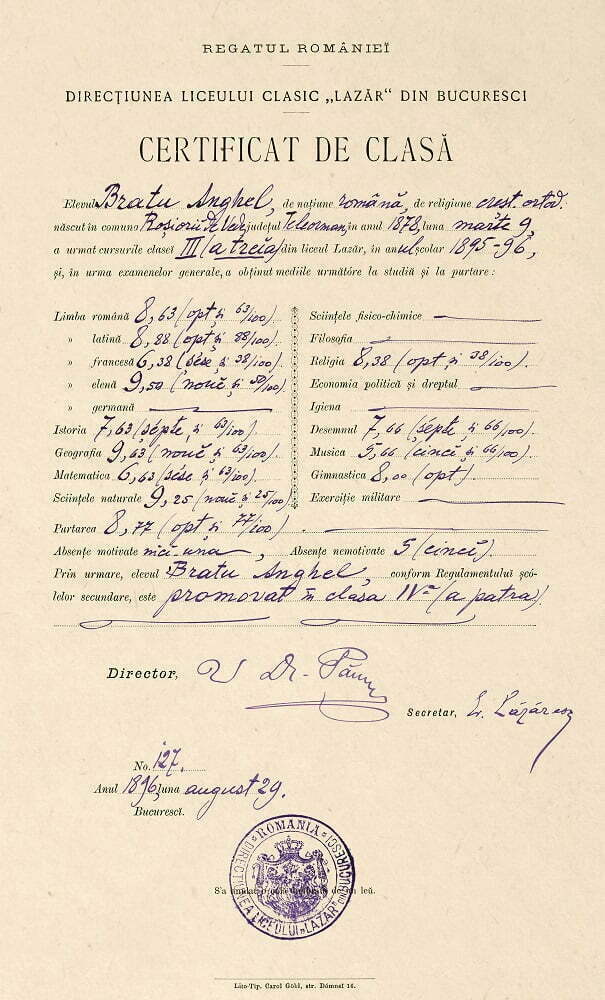 REGATUL ROMÂNIEĬ
DIRECȚIUNEA LICEULUI CLASIC „LAZĂR“ DIN BUCURESCI
CERTIFICAT DE CLASĂ
Elevul Bratu Anghel, de națiune română, de religiune crest. ortod.
născut în comuna Roșiorii de Vede județul Teleorman, în anul 1878, luna marte 9,
a urmat cursurile clasei III (a treia) din liceul Lazăr, în anul școlar 1895-96,
și, în urma examenelor generale, a obținut mediile următóre la studii și la purtare:
Limba română 8,63 (opt și 63/100)
„ latină 8,88 (opt și 88/100)
„ francesă 6,38 (șése și 38/100)
„ elenă 9,50 (nouĕ și 50/100)
„ germană
Istoria 7,63 (șépte și 63/100)
Geografia 9,63 (nouĕ și 63/100)
Matematica 6,63 (șése și 63/100)
Sciințele naturale 9,25 (nouĕ și 25/100)
Sciințele fisico-chimice
Filosofia
Religia 8,38 (opt și 38/100)
Economia politică și dreptul
Igiena
Desemnul 7,66 (șépte și 66/100)
Musica 5,66 (cincĭ și 66/100)
Gimnastica 8,00 (opt)
Exerciție militare
Purtarea 8,77 (opt și 77/100)
Absențe motivate nici-una, Absențe nemotivate 5 (cincĭ).
Prin urmare, elevul Bratu Anghel, conform Regulamentului șcó-
lelor secundare, este promovat în clasa IV-a (a patra).
Director, Dr.
Secretar,
No. 127.
Anul 1896, luna august 29.
Bucurescĭ.
ROMANIA
DIRECȚIUNEA LICEULUI „LAZĂR“ DIN BUCURESCI
S'a de un leŭ.
Lito-Tip. Carol Göbl, str. Dómneĭ 16.